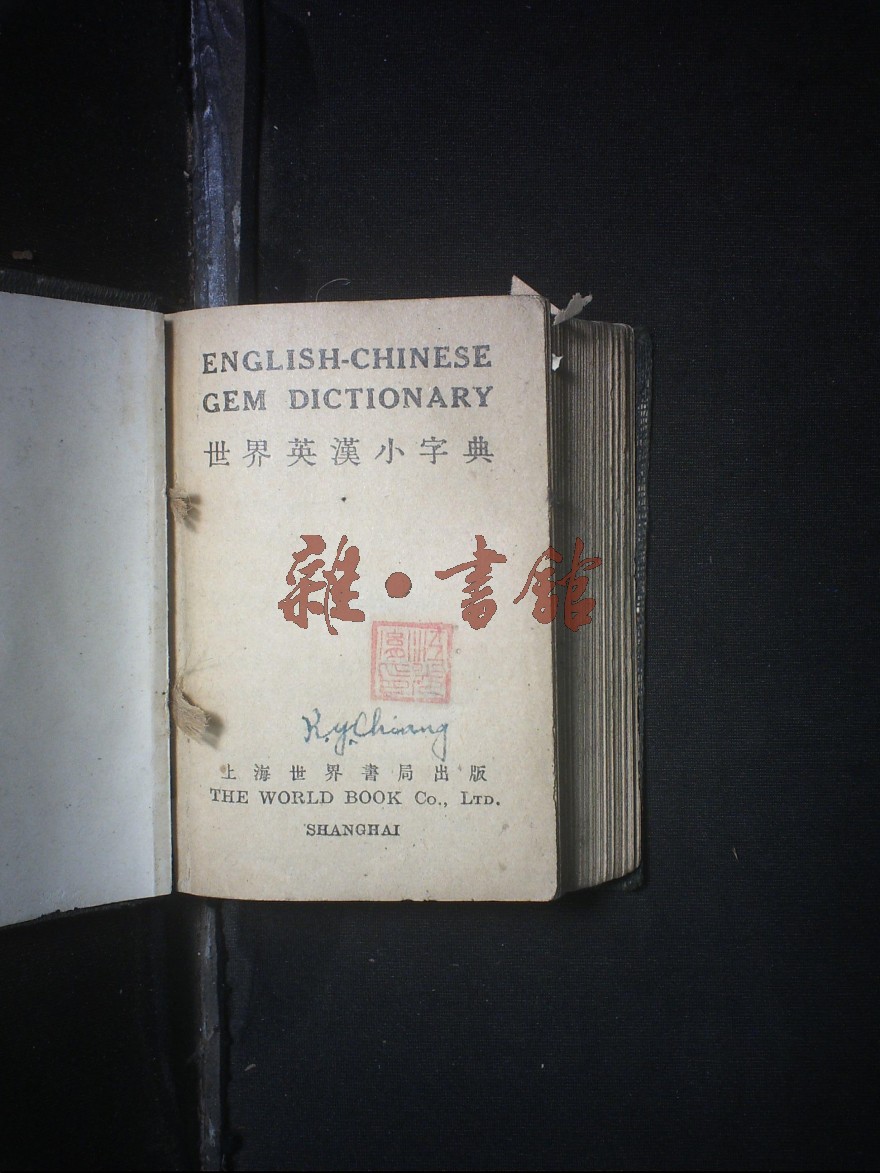 ENGLISH-CHINESE
GEM DICTIONARY
世界英漢小字典
雜·書館
K.y.Chiang
上海世界書局出版
THE WORLD BOOK Co., LTD.
SHANGHAI